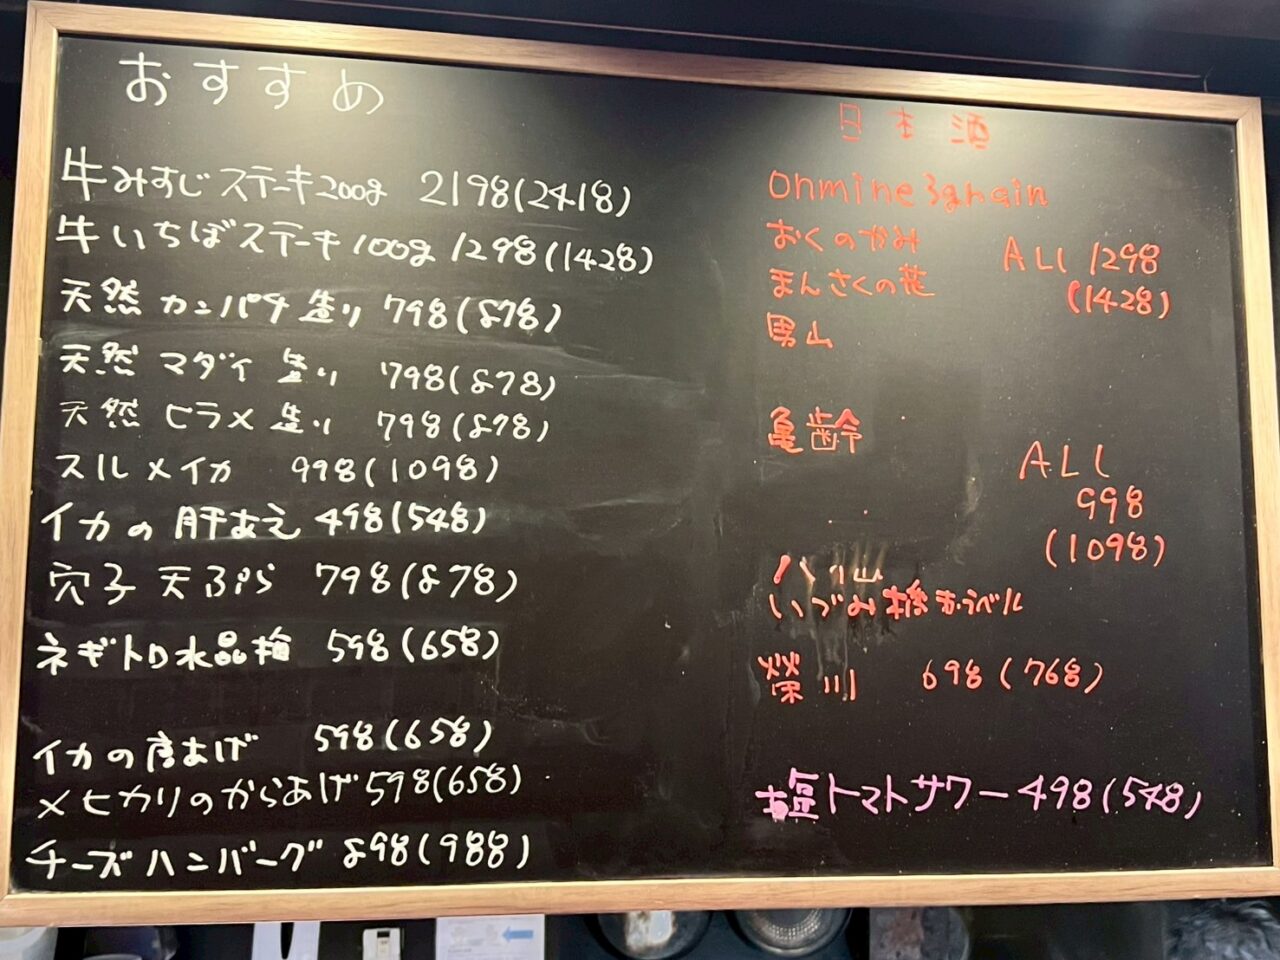 おすすめ
牛みすじステーキ200g 2198(2418)
牛いちぼステーキ100g 1298(1428)
天然 カンパチ 造り 798(878)
天然 マダイ 造り 798(878)
天然 ヒラメ 造り 798(878)
スルメイカ 998(1098)
イカの肝あえ 498(548)
穴子 天ぷら 798(878)
ネギトロ水晶梅 598(658)
イカの唐あげ 598(658)
メヒカリのからあげ 598(658)
チーズハンバーグ 898(988)
日本酒
ohmine 3grain
おくのかみ
まんさくの花
男山
ALL 1298
(1428)
亀齢
ALL
998
(1098)
いづみ橋 赤ラベル
榮川 698(768)
塩トマトサワー 498(548)